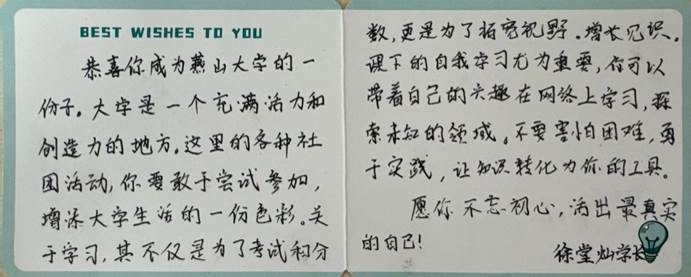 BEST WISHES TO YOU
恭喜你成为燕山大学的一
份子。大学是一个充满活力和
创造力的地方。这里的各种社
团活动,你要敢于尝试参加,
增添大学生活的一份色彩。关
于学习,其不仅是为了考试和分
数,更是为了拓宽视野。增长见识。
课下的自我学习尤为重要,你可以
带着自己的兴趣在网络上学习,探
索未知的领域。不要害怕困难,勇
于实践,让知识转化为你的工具。
愿你不忘初心,活出最真实
的自己!
徐堂灿学长